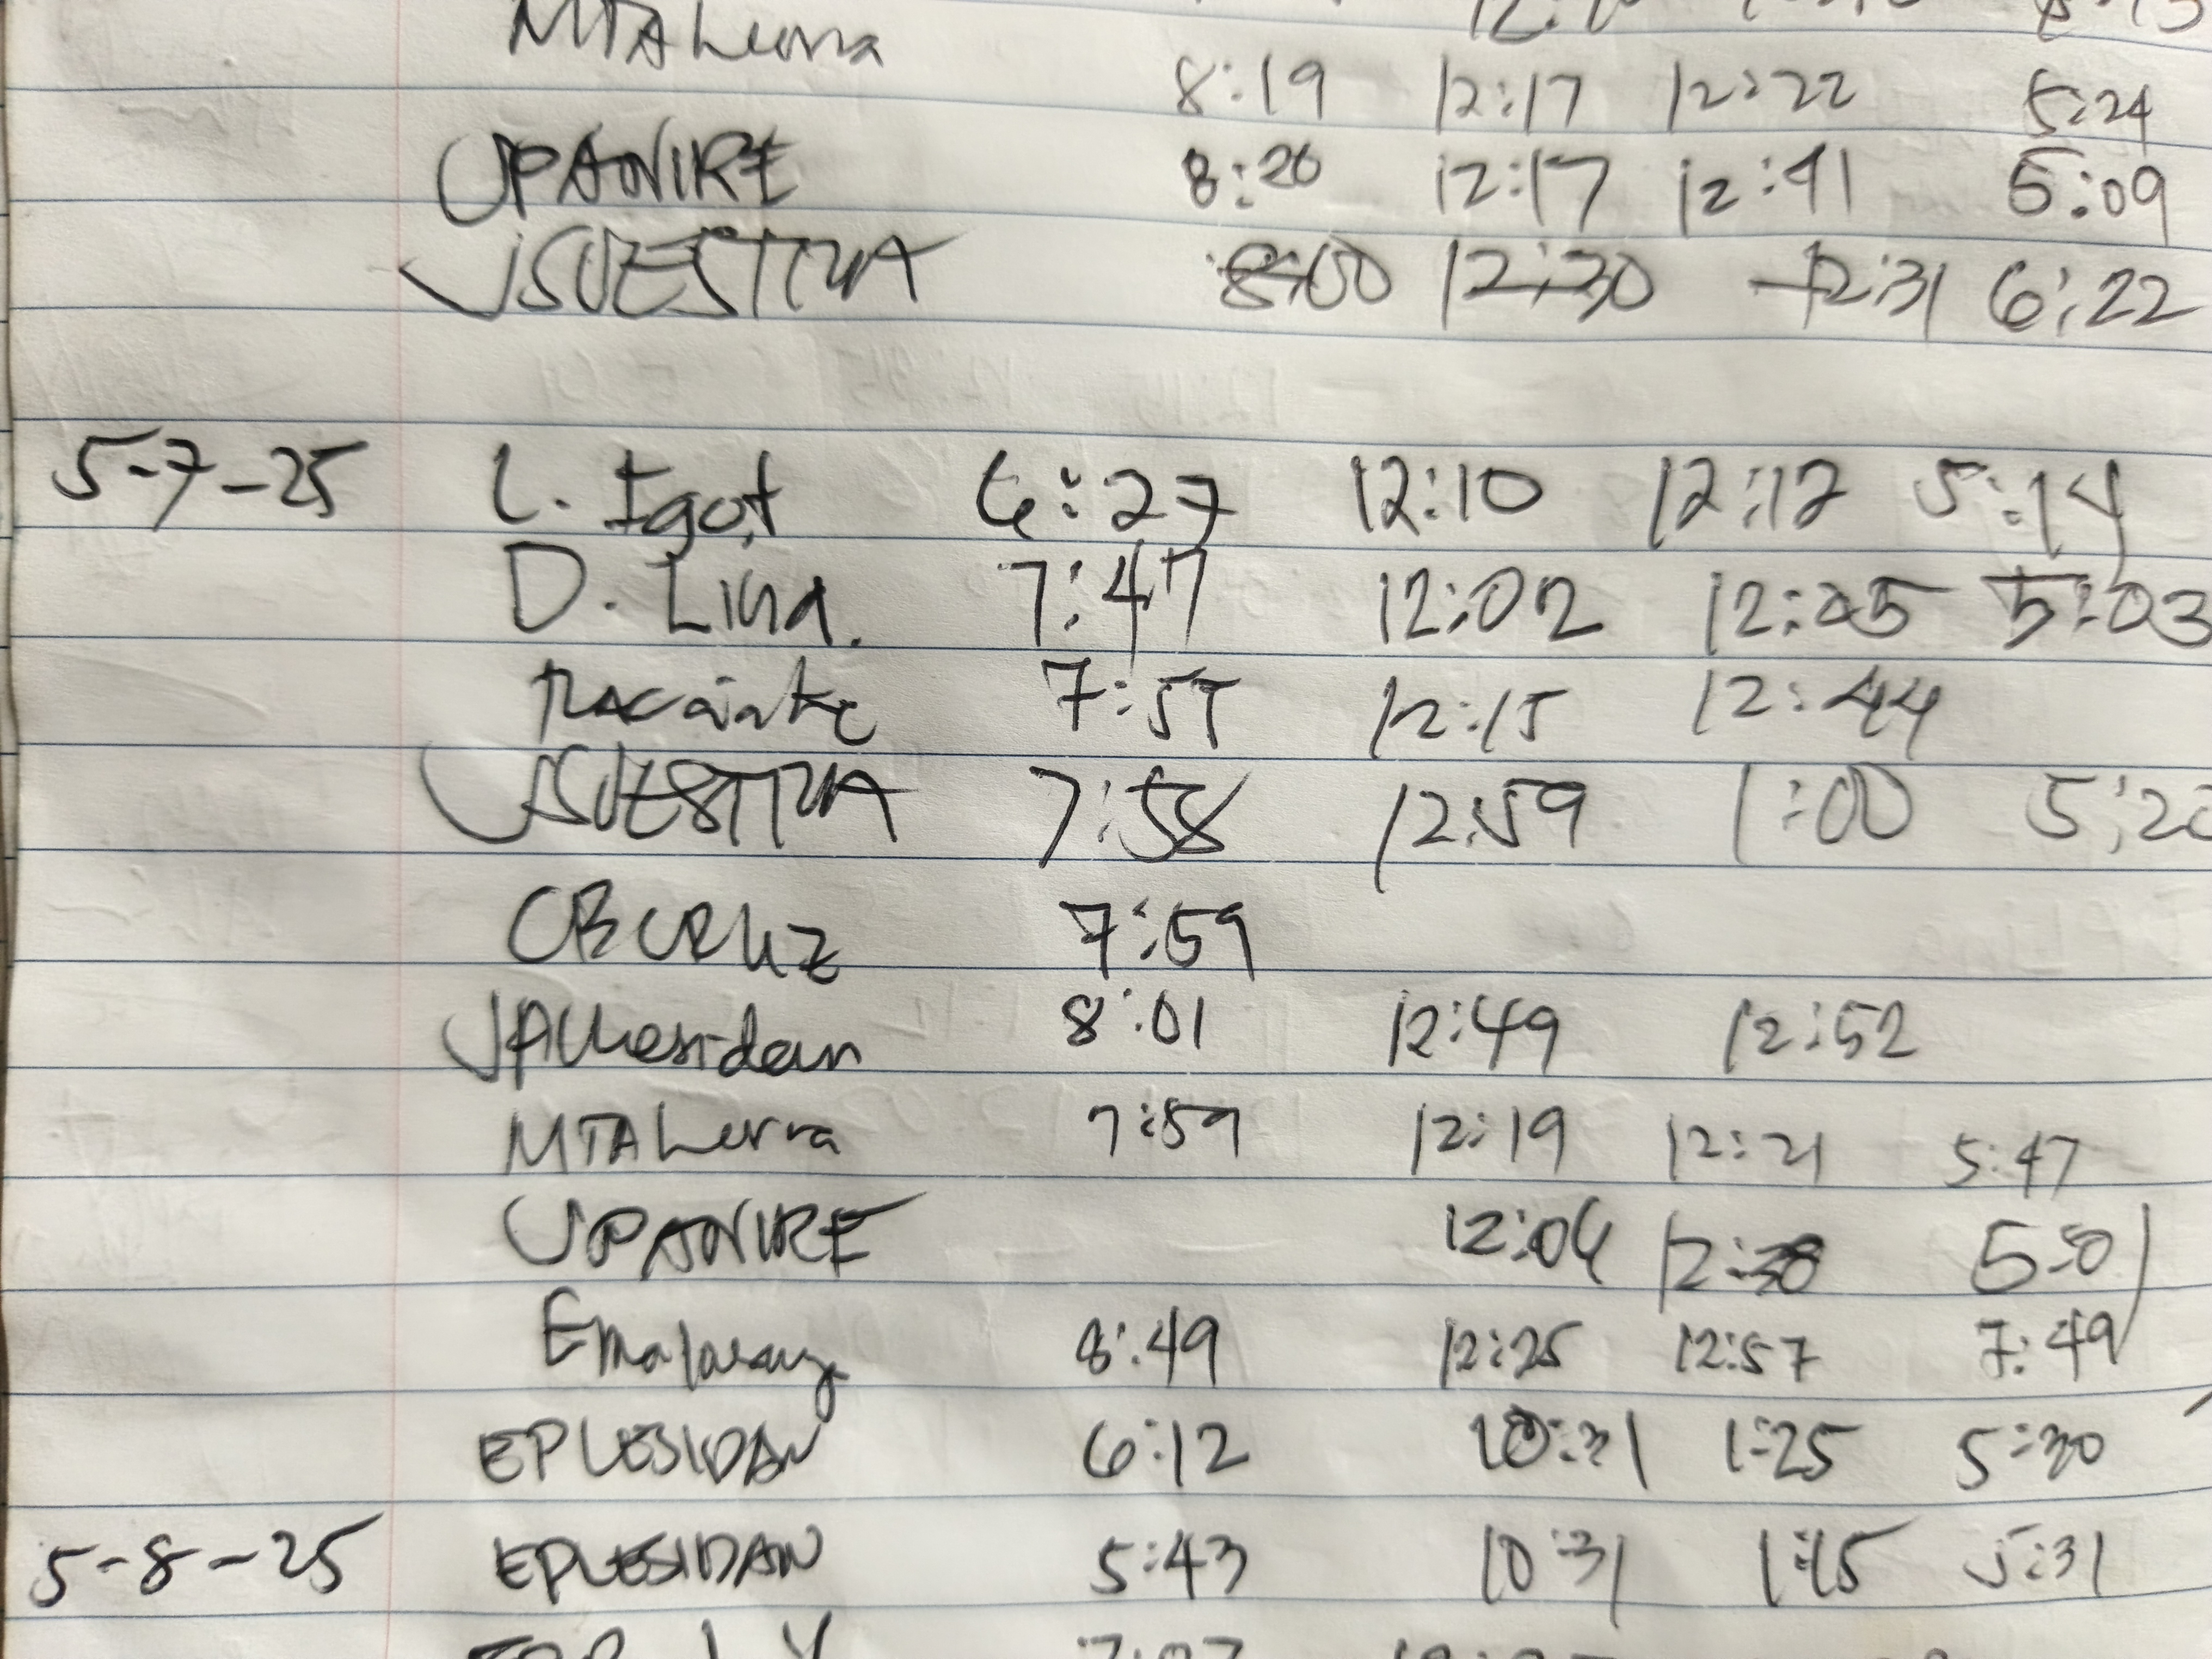 MTALerma
8:19 12:17 12:22 5:24
JPANIRE 8:20 12:17 12:41 5:09
JSVESTIDA 8:00 12:30 12:31 6:22
5-7-25 L. Igot 6:27 12:10 12:12 5:14
D. Lina. 7:47 12:02 12:05 5:03
7:57 12:15 12:44
7:58 12:59 1:00
CBCRUZ 7:59
8:01 12:49 12:52
MTALerma 7:59 12:19 12:21 5:47
JPANIRE 12:04 5:01
8:49 12:25 12:57 7:49
EPLESIDAN 6:12 10:31 1:25 5:30
5-8-25 EPLESIDAN 5:43 10:31 1:15 5:31